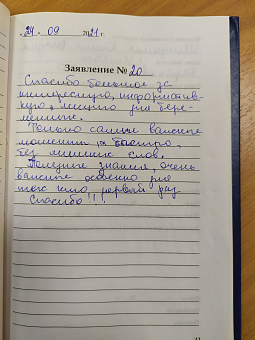 «24» 09 2021г.
Заявление № 20
Спасибо большое за
интересную, информатив-
ную, лекцию для бере-
менных.
Только самые важные
моменты и быстро,
без лишних слов.
Полезные знания, очень
важные особенно для
тех кто первый раз.
Спасибо!!!